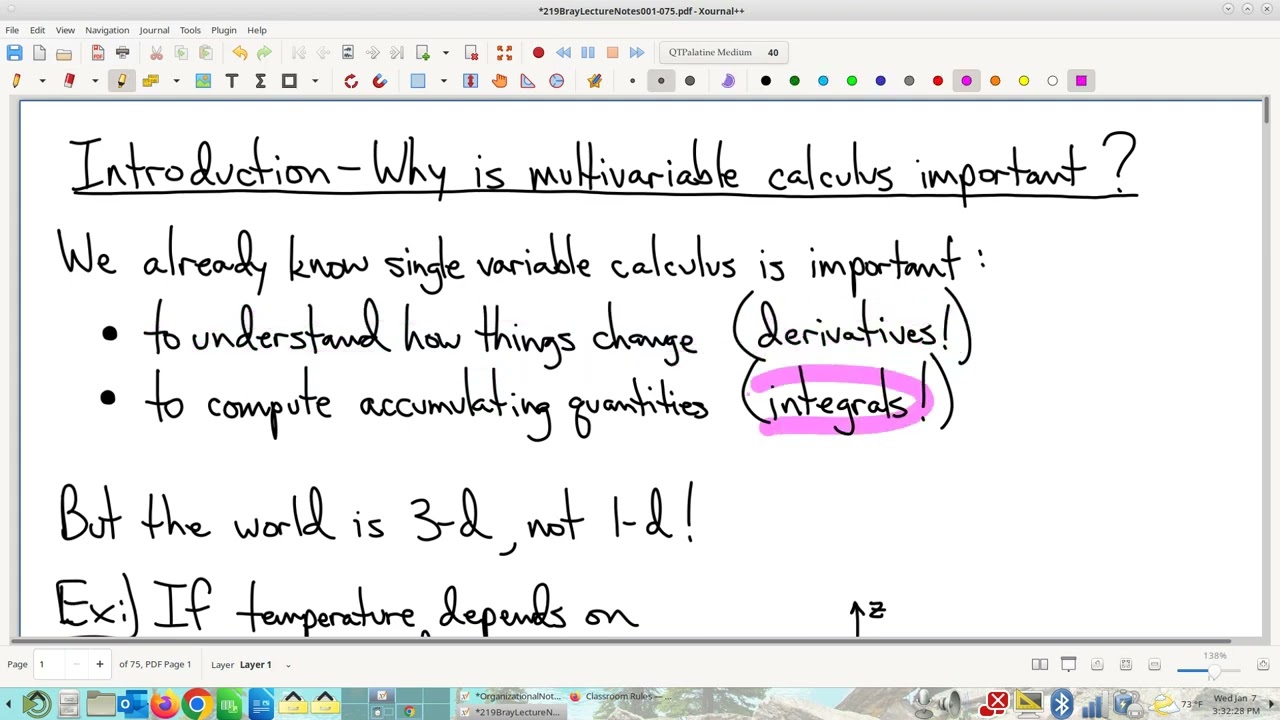 *219BrayLectureNotes001-075.pdf - Xournal++
File Edit View Navigation Journal Tools Plugin Help
QTPalatine Medium 40
Introduction - Why is multivariable calculus important?
We already know single variable calculus is important:
• to understand how things change (derivatives!)
• to compute accumulating quantities (integrals!)
But the world is 3-d, not 1-d!
Ex:) If temperature depends on
z
Page 1 of 75, PDF Page 1 Layer Layer 1 138%
*OrganizationalNot... Classroom Rules —...
*219BrayLectureN...
73°F
Wed Jan 7,
3:32:28 PM